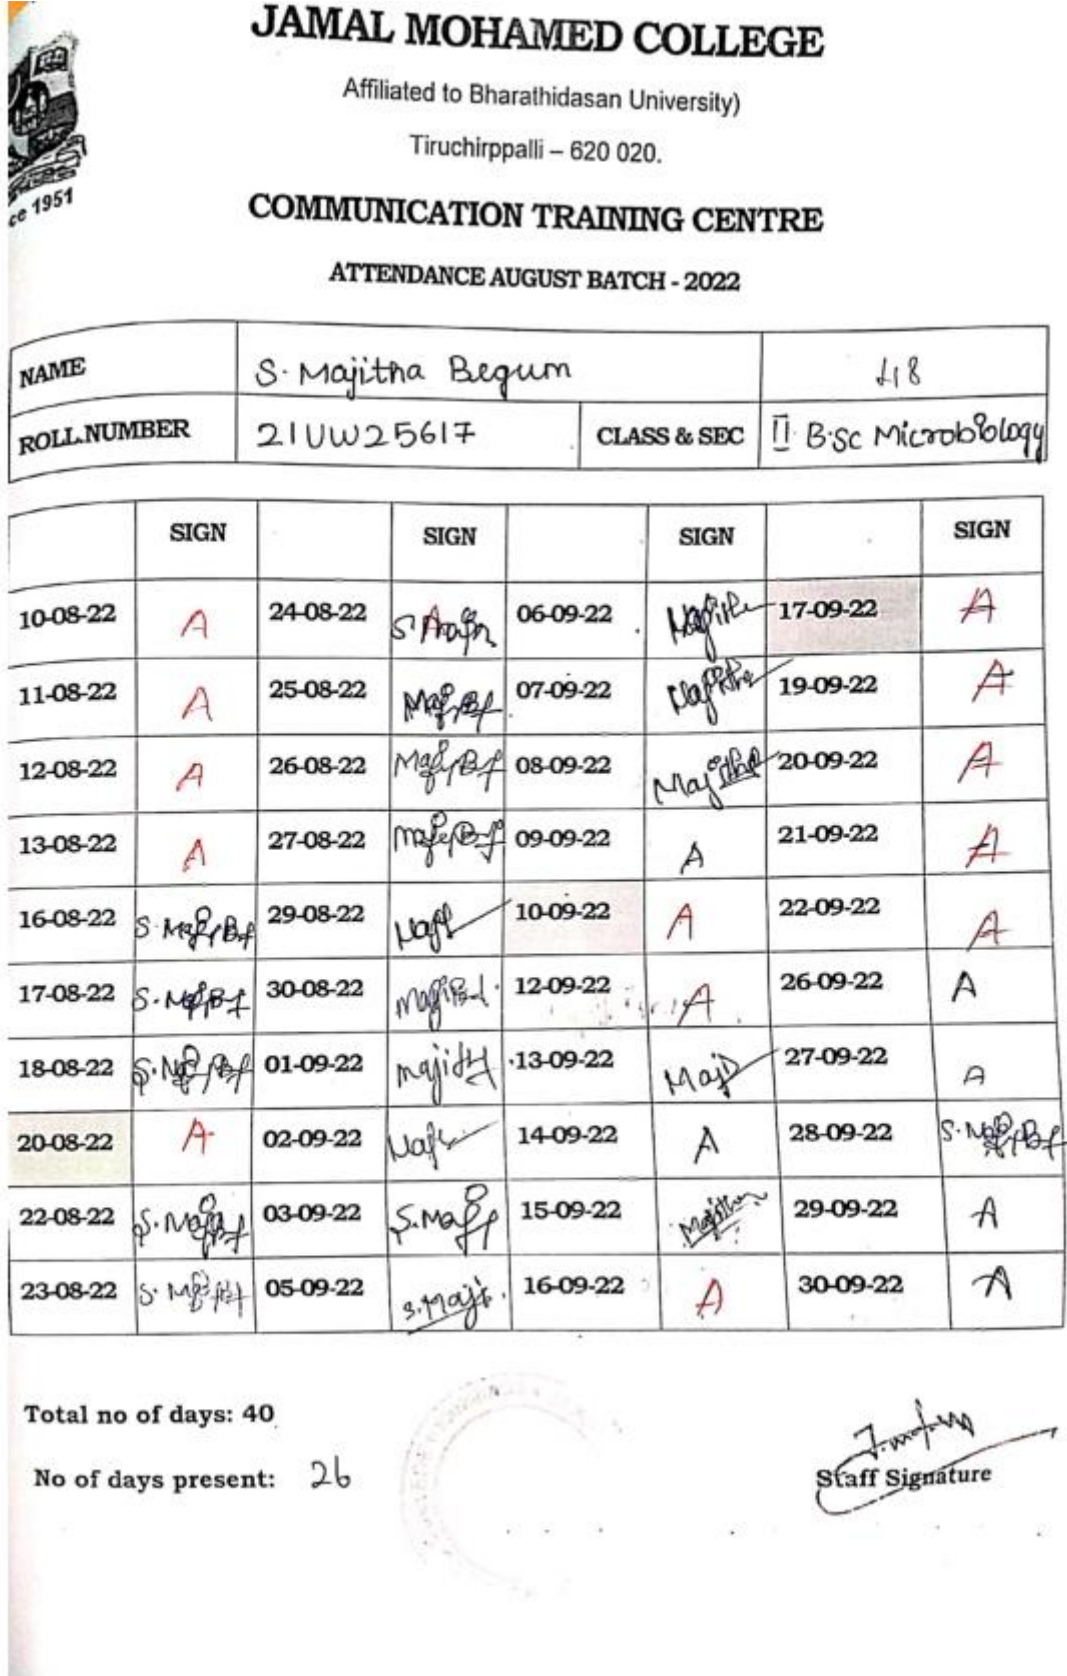 JAMAL MOHAMED COLLEGE
Affiliated to Bharathidasan University)
Tiruchirppalli – 620 020.
ce 1951
COMMUNICATION TRAINING CENTRE
ATTENDANCE AUGUST BATCH - 2022
NAME S. Majitha Begum 418
ROLL.NUMBER 21UW25617 CLASS & SEC II B.Sc Microbiology
SIGN SIGN SIGN SIGN
10-08-22 A 24-08-22 06-09-22 17-09-22 A
11-08-22 A 25-08-22 07-09-22 19-09-22 A
12-08-22 A 26-08-22 08-09-22 Majitha 20-09-22 A
13-08-22 A 27-08-22 09-09-22 A 21-09-22 A
16-08-22 29-08-22 10-09-22 A 22-09-22 A
17-08-22 30-08-22 12-09-22 A 26-09-22 A
18-08-22 01-09-22 13-09-22 27-09-22 A
20-08-22 A 02-09-22 14-09-22 A 28-09-22
22-08-22 03-09-22 15-09-22 29-09-22 A
23-08-22 05-09-22 S.Maji. 16-09-22 A 30-09-22 A
Total no of days: 40
No of days present: 26
Staff Signature